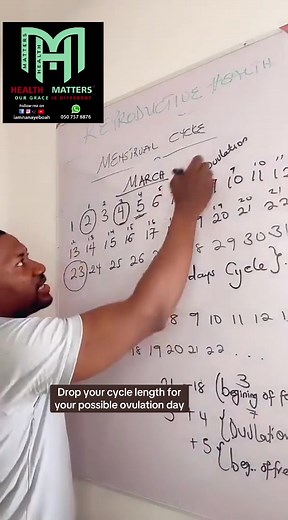 MATTERS
HEALTH
HEALTH MATTERS
OUR GRACE IS DIFFERENT
Follow me on
iamnanayeboah
050 757 8876
REPRODUCTIVE HEALTH
MENSTRUAL CYCLE
MARCH
Ovulation
10 11 12
1 2 3 4 5 6
9 10 11 12
13 14 15 16 17
19 20 21 22
23 24 25 26
28 29 30 31
days Cycle }
8 9 10 11 12
18 19 20 21 22 ...
Drop your cycle length for
your possible ovulation day
18 (begining of
+ 4 (Ovulation
+ 5 (beg.. of